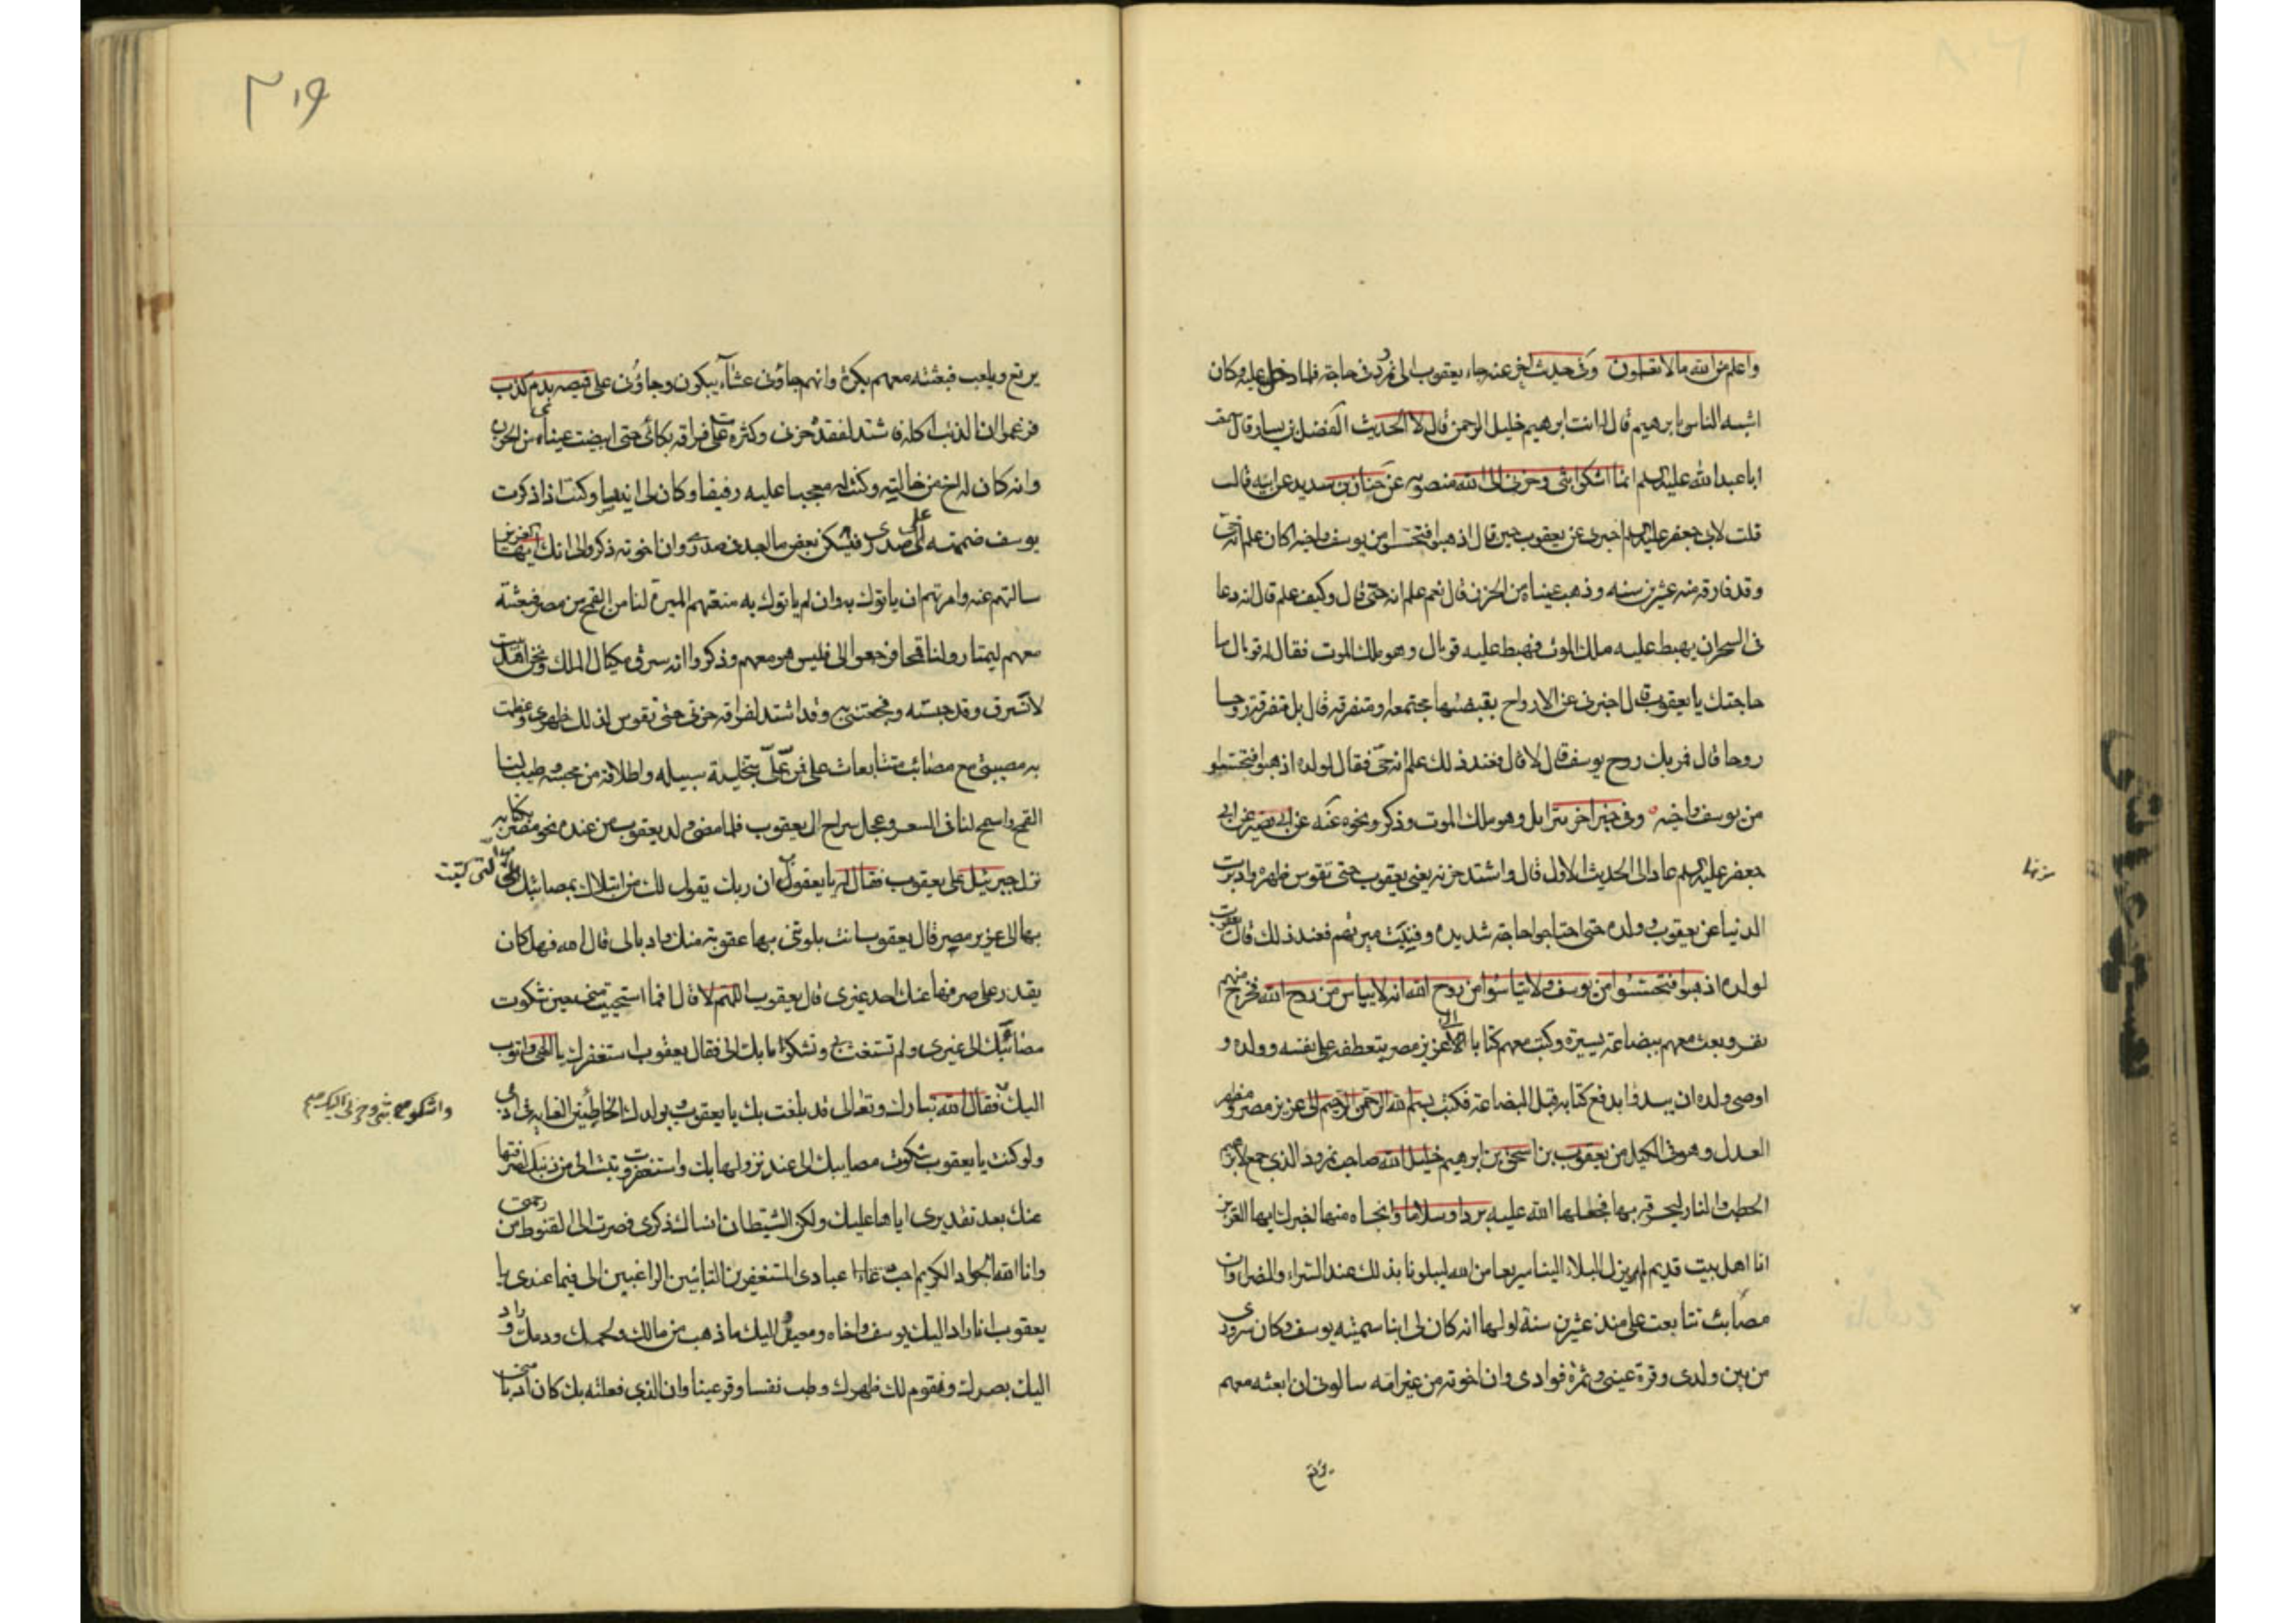 واعلم من الله ما لا تعلمون وفي حديث اخر عنه جاء يعقوب الى نمرود في حاجة فلما دخل عليه وكان
اشبه الناس بابرهيم قال له انت ابرهيم خليل الرحمن قال لا الحديث الفضل بن يسار قال سمعت
ابا عبد الله عليه السلم انما اشكوا بثي وحزني الى الله منصوبه عن حنان بن سدير عن ابيه قالت
قلت لابي جعفر عليه السلم اخبرني عن يعقوب حين قال اذهبوا فتحسسوا من يوسف واخيه اكان علم انه حي
وقد فارقه منه عشرين سنه وذهب عيناه من الحزن قال نعم علم انه حتى قال وكيف علم قال انه دعا
في السحر ان يهبط عليه ملك الموت فهبط عليه قوبال وهو ملك الموت فقال له قوبال ما
حاجتك يا يعقوب قال اخبرني عن الارواح يقبضها مجتمعه او متفرقه قال بل متفرقة روحا
روحا قال فمر بك روح يوسف قال لا قال فعند ذلك علم انه حي فقال لولده اذهبوا فتحسسوا
من يوسف واخيه وفي خبر اخر تبرايل وهو ملك الموت وذكر ونحوه عنه عن ابي بصير عن ابي
جعفر عليه السلم عاد الى الحديث الاول قال واشتد حزنه يعني يعقوب حتى تقوس ظهره وادبرت
الدنيا عن يعقوب وولده حتى احتاجوا حاجة شديده وفنيت ميرتهم فعند ذلك قال يعقوب
لولده اذهبوا فتحسسوا من يوسف ولا تياسوا من روح الله انه لا يياس من روح الله فخرج منهم
نفر وبعث معهم ببضاعة يسيرة وكتب معهم كتابا الى عزيز مصر يتعطفه على نفسه وولده و
اوصى ولده ان يبدوا بدفع كتابه قبل البضاعة فكتب بسم الله الرحمن الرحيم الى عزيز مصر ومظهر
العدل وموفي الكيل من يعقوب بن اسحق بن ابرهيم خليل الله صاحب نمرود الذي جمع لابرهيم
الحطب والنار ليحرقه بها فجعلها الله عليه بردا وسلاما وانجاه منها اخبرك ايها العزيز
انا اهل بيت قديم لم يزل البلاء الينا سريعا من الله ليبلونا بذلك عند السراء والضراء وان
مصائب تتابعت علي منذ عشرين سنة اولها انه كان لي ابنا سميته يوسف وكان سروري
من بين ولدي وقرة عيني وثمرة فوادي وان اخوته من غير امه سالوني ان ابعثه معهم
يرتع
٣١٩
يرتع ويلعب فبعثته معهم بكرة وانهم جاؤني عشاء يبكون وجاؤني على قميصه بدم كذب
فزعموا ان الذئب اكله فاشتد لفقده حزني وكثرت على فراقه بكائي حتى ابيضت عيناي من الحزن
وانه كان له اخ من خالته وكنت له معجبا وعليه رفيقا وكان لي انيسا وكنت اذا ذكرت
يوسف ضممته الى صدري فيسكن بعض ما اجد في صدري وان اخوته ذكروا لي انك ايها العزيز
سالتهم عنه وامرتهم ان ياتوك به وان لم ياتوك به منعتهم الميرة لنا من القمح من مصر فبعثته
معهم ليمتاروا لنا قمحا فرجعوا الي فليس هو معهم وذكروا انه سرق مكيال الملك ونحن اهل بيت
لا نسرق وقد حبسته وفجعتني به وقد اشتد لفراقه حزني حتى تقوس لذلك ظهري وعظمت
به مصيبتي مع مصائب متتابعات علي فمن علي بتخلية سبيله واطلاقه من محبسه وطيب لنا
القمح واسمح لنا في السعر وعجل سراح ال يعقوب فلما مضى ولد يعقوب من عنده نحو مصر بكتابه
نزل جبرئيل على يعقوب فقال له يا يعقوب ان ربك يقول لك من ابتلاك بمصائبك التي كتبت
بها الى عزيز مصر قال يعقوب انت بلوتني بها عقوبة منك وادبا لي قال الله فهل كان
يقدر على صرفها عنك احد غيري قال يعقوب اللهم لا قال افما استحييت مني حين شكوت
مصائبك الى غيري ولم تستغث بي وتشكوا ما بك الي فقال يعقوب استغفرك يا الهي واتوب
اليك فقال الله تبارك وتعالى قد بلغت بك يا يعقوب وبولدك الخاطئين الغاية في ادبي
واشكو بثي وحزني اليك صح
ولو كنت يا يعقوب شكوت مصايبك الي عند نزولها بك واستغفرت وتبت الي من ذنبك لصرفتها
عنك بعد تقديري اياها عليك ولكن الشيطان انساك ذكري فصرت الى القنوط من رحمتي
وانا الله الجواد الكريم احب عبادي المستغفرين التائبين الراغبين الي فيما عندي يا
يعقوب انا راد اليك يوسف واخاه ومعيد اليك ما ذهب من مالك ولحمك ودمك وراد
اليك بصرك ومقوم لك ظهرك وطب نفسا وقر عينا وان الذي فعلته بك كان ادبا مني